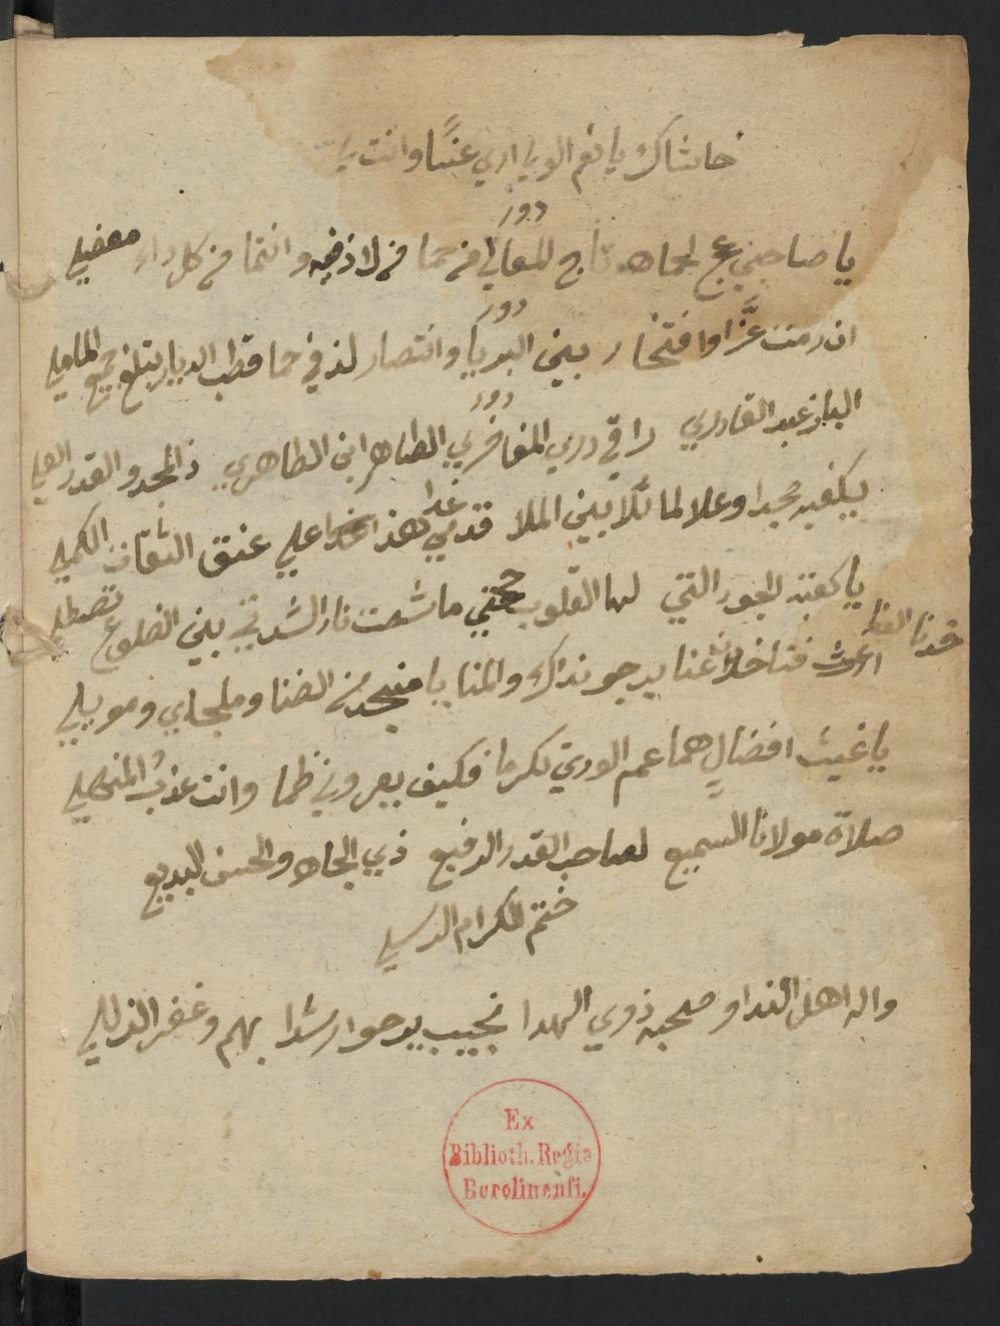 حاشاك يا نعم الولي اري عنًا وانت
دور
يا صاحبي عج لحماه تاج المعالي من حما من لاذ فيه وانتما من كل داء معضلي
دور
ان رمت عزًا وافتخار بين البريا وانتصار لذ في حما قطب الديار تبلغ جميع المأملي
دور
الباز عبد القادري راقي دري المفاخري الطاهر ابن الطاهري ذا المجد والقدر العلي
يكفيه مجدا وعلا لما تلا بين الملا قدمي هذا علي عنق الثقات الكملي
غدا
يا كعبة الجود التي لها القلوب حجتي ما شمت نار الشدتي بين الضلوع تصطلي
خدنا الفلا
فتا خلان عنا يرجو نداك والمنا يا منجدي من الضنا وملجاي وموئلي
يا غيث افضالٍ هما عم الوري تكرما فكيف يعروني ظما وانت عذبُ المنهلي
صلاة مولانا السميع لصاحب القدر الرفيع ذي الجاه والحسن البديع
ختم الكرام الرسلي
واله اهل الندا وصحبه ذوي الهدا نجيب يرجوا رشدا بهم وغفر الزللي
Ex
Biblioth. Regia
Berolinensi.